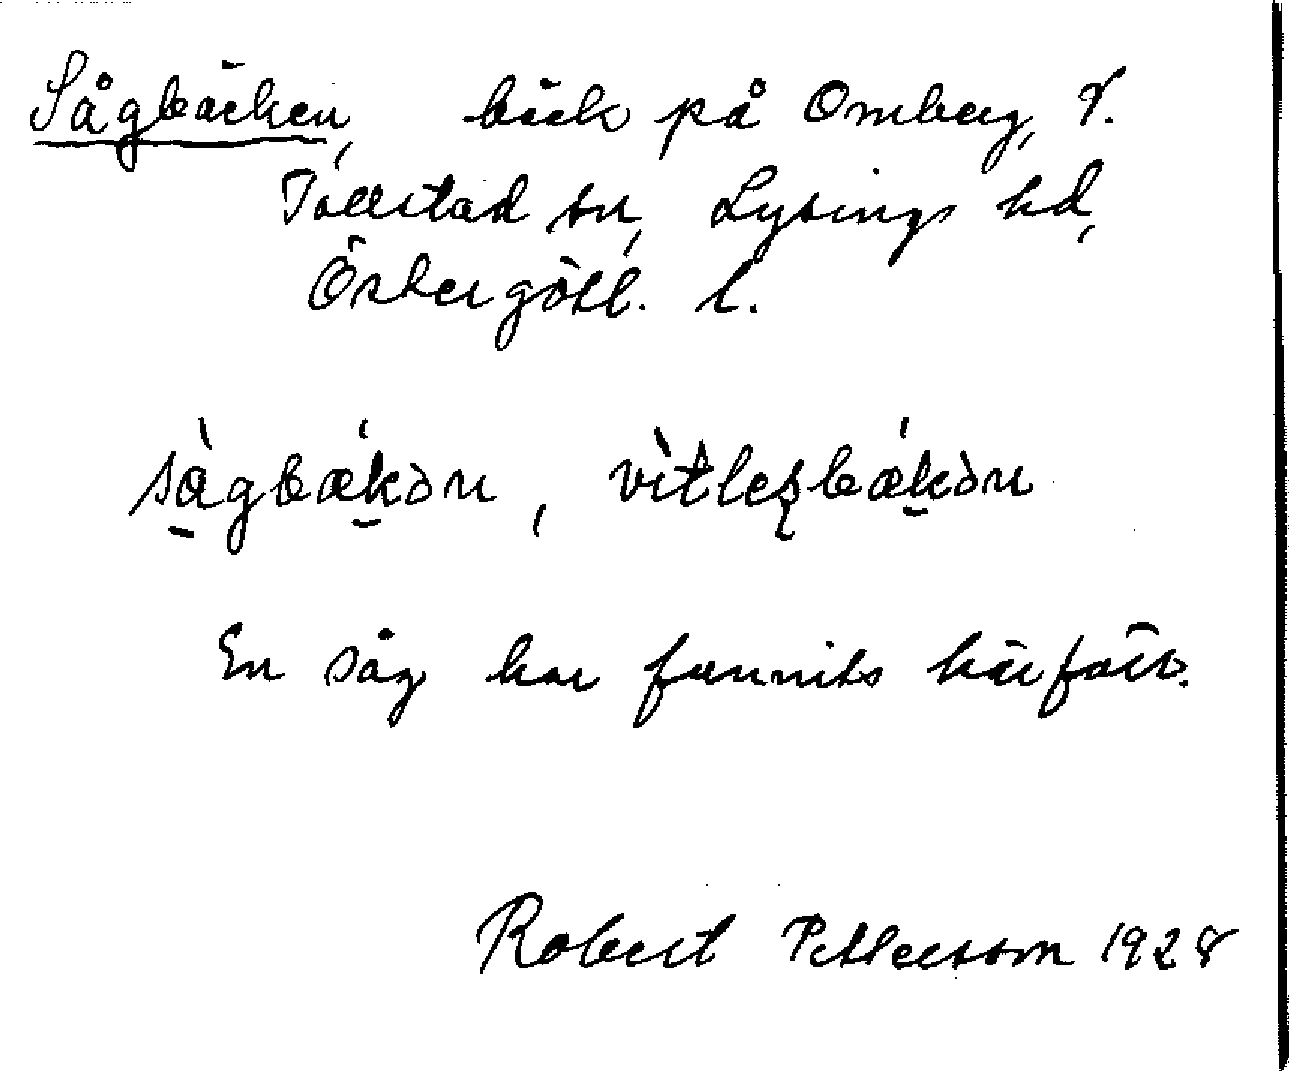 Sågbäcken, bäck på Omberg, V.
Tollstad sn, Lysings hd,
Östergötl. l.
sàgbækən, vìtlesbækən
En såg har funnits härförr.
Robert Pettersson 1928